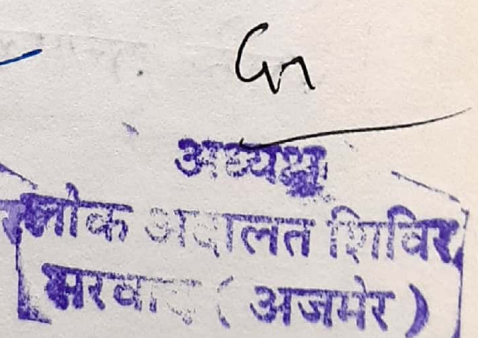 अध्यक्ष
लोक अदालत शिविर
सरवाड़ ( अजमेर )